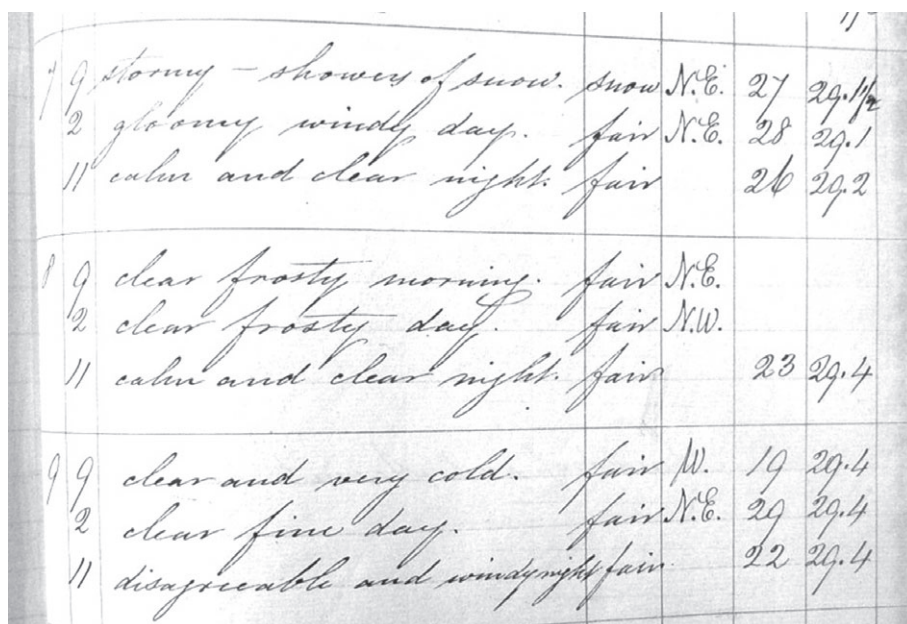 7 9 stormy – showers of snow. snow N.E. 27 29.1½
2 gloomy windy day. fair N.E. 28 29.1
11 calm and clear night. fair 26 29.2
8 9 clear frosty morning. fair N.E.
2 clear frosty day. fair N.W.
11 calm and clear night. fair 23 29.4
9 9 clear and very cold. fair W. 19 29.4
2 clear fine day. fair N.E. 29 29.4
11 disagreeable and windy night fair 22 29.4